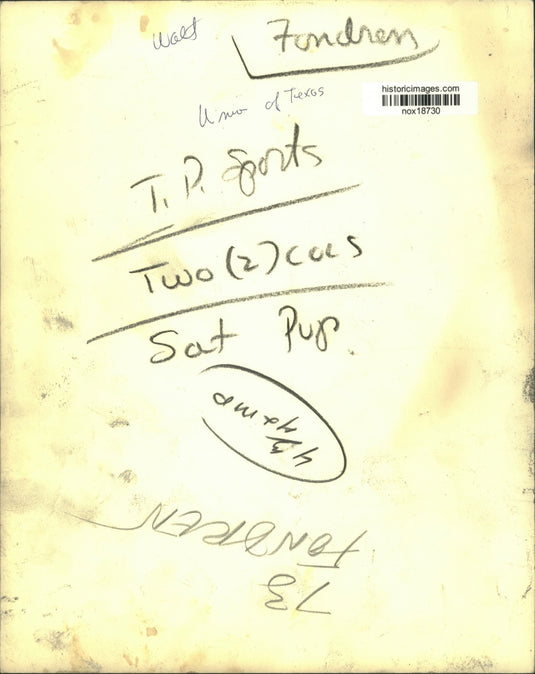 Walt
Fondren
historicimages.com
nox18730
Univ of Texas
T.P. Sports
Two (2) cols
Sat Pup
FONDREN
73